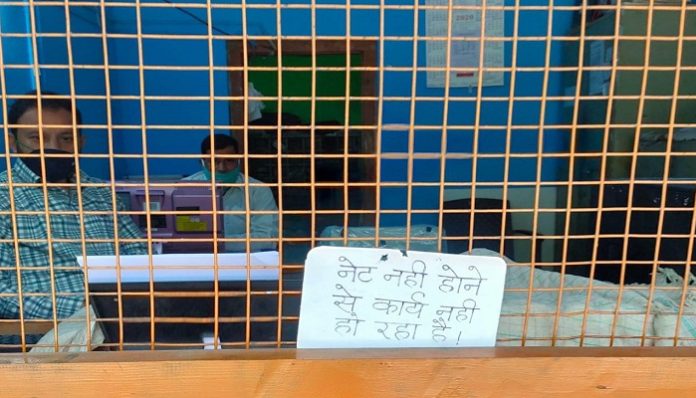 2020
नेट नही होने
से कार्य नही
हो रहा है !